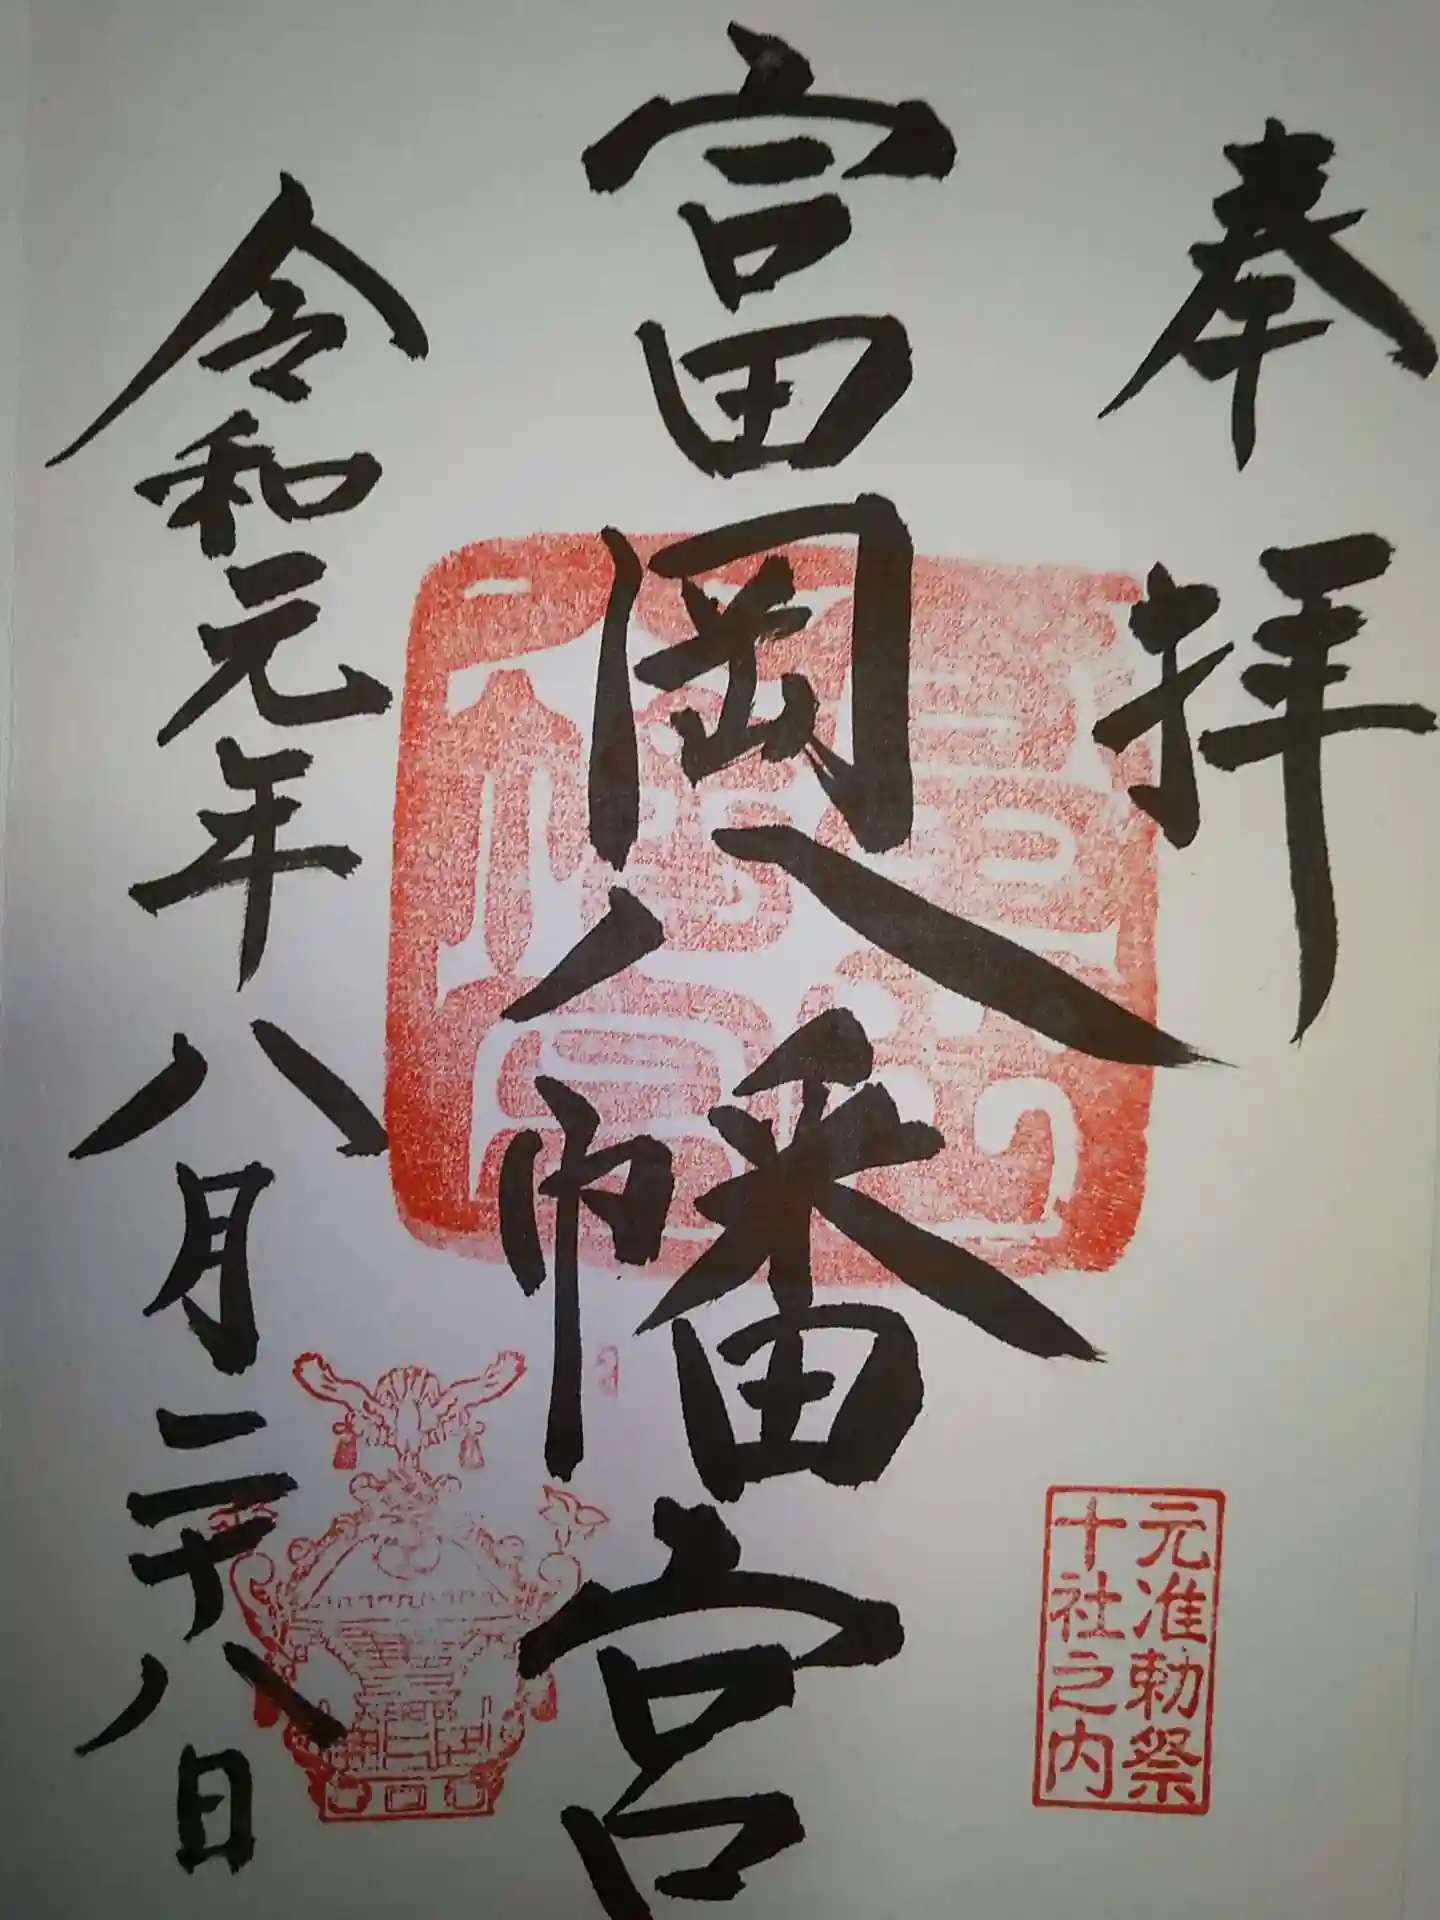 奉拝
元准勅祭
十社之内
富岡八幡宮
令和元年八月二十八日